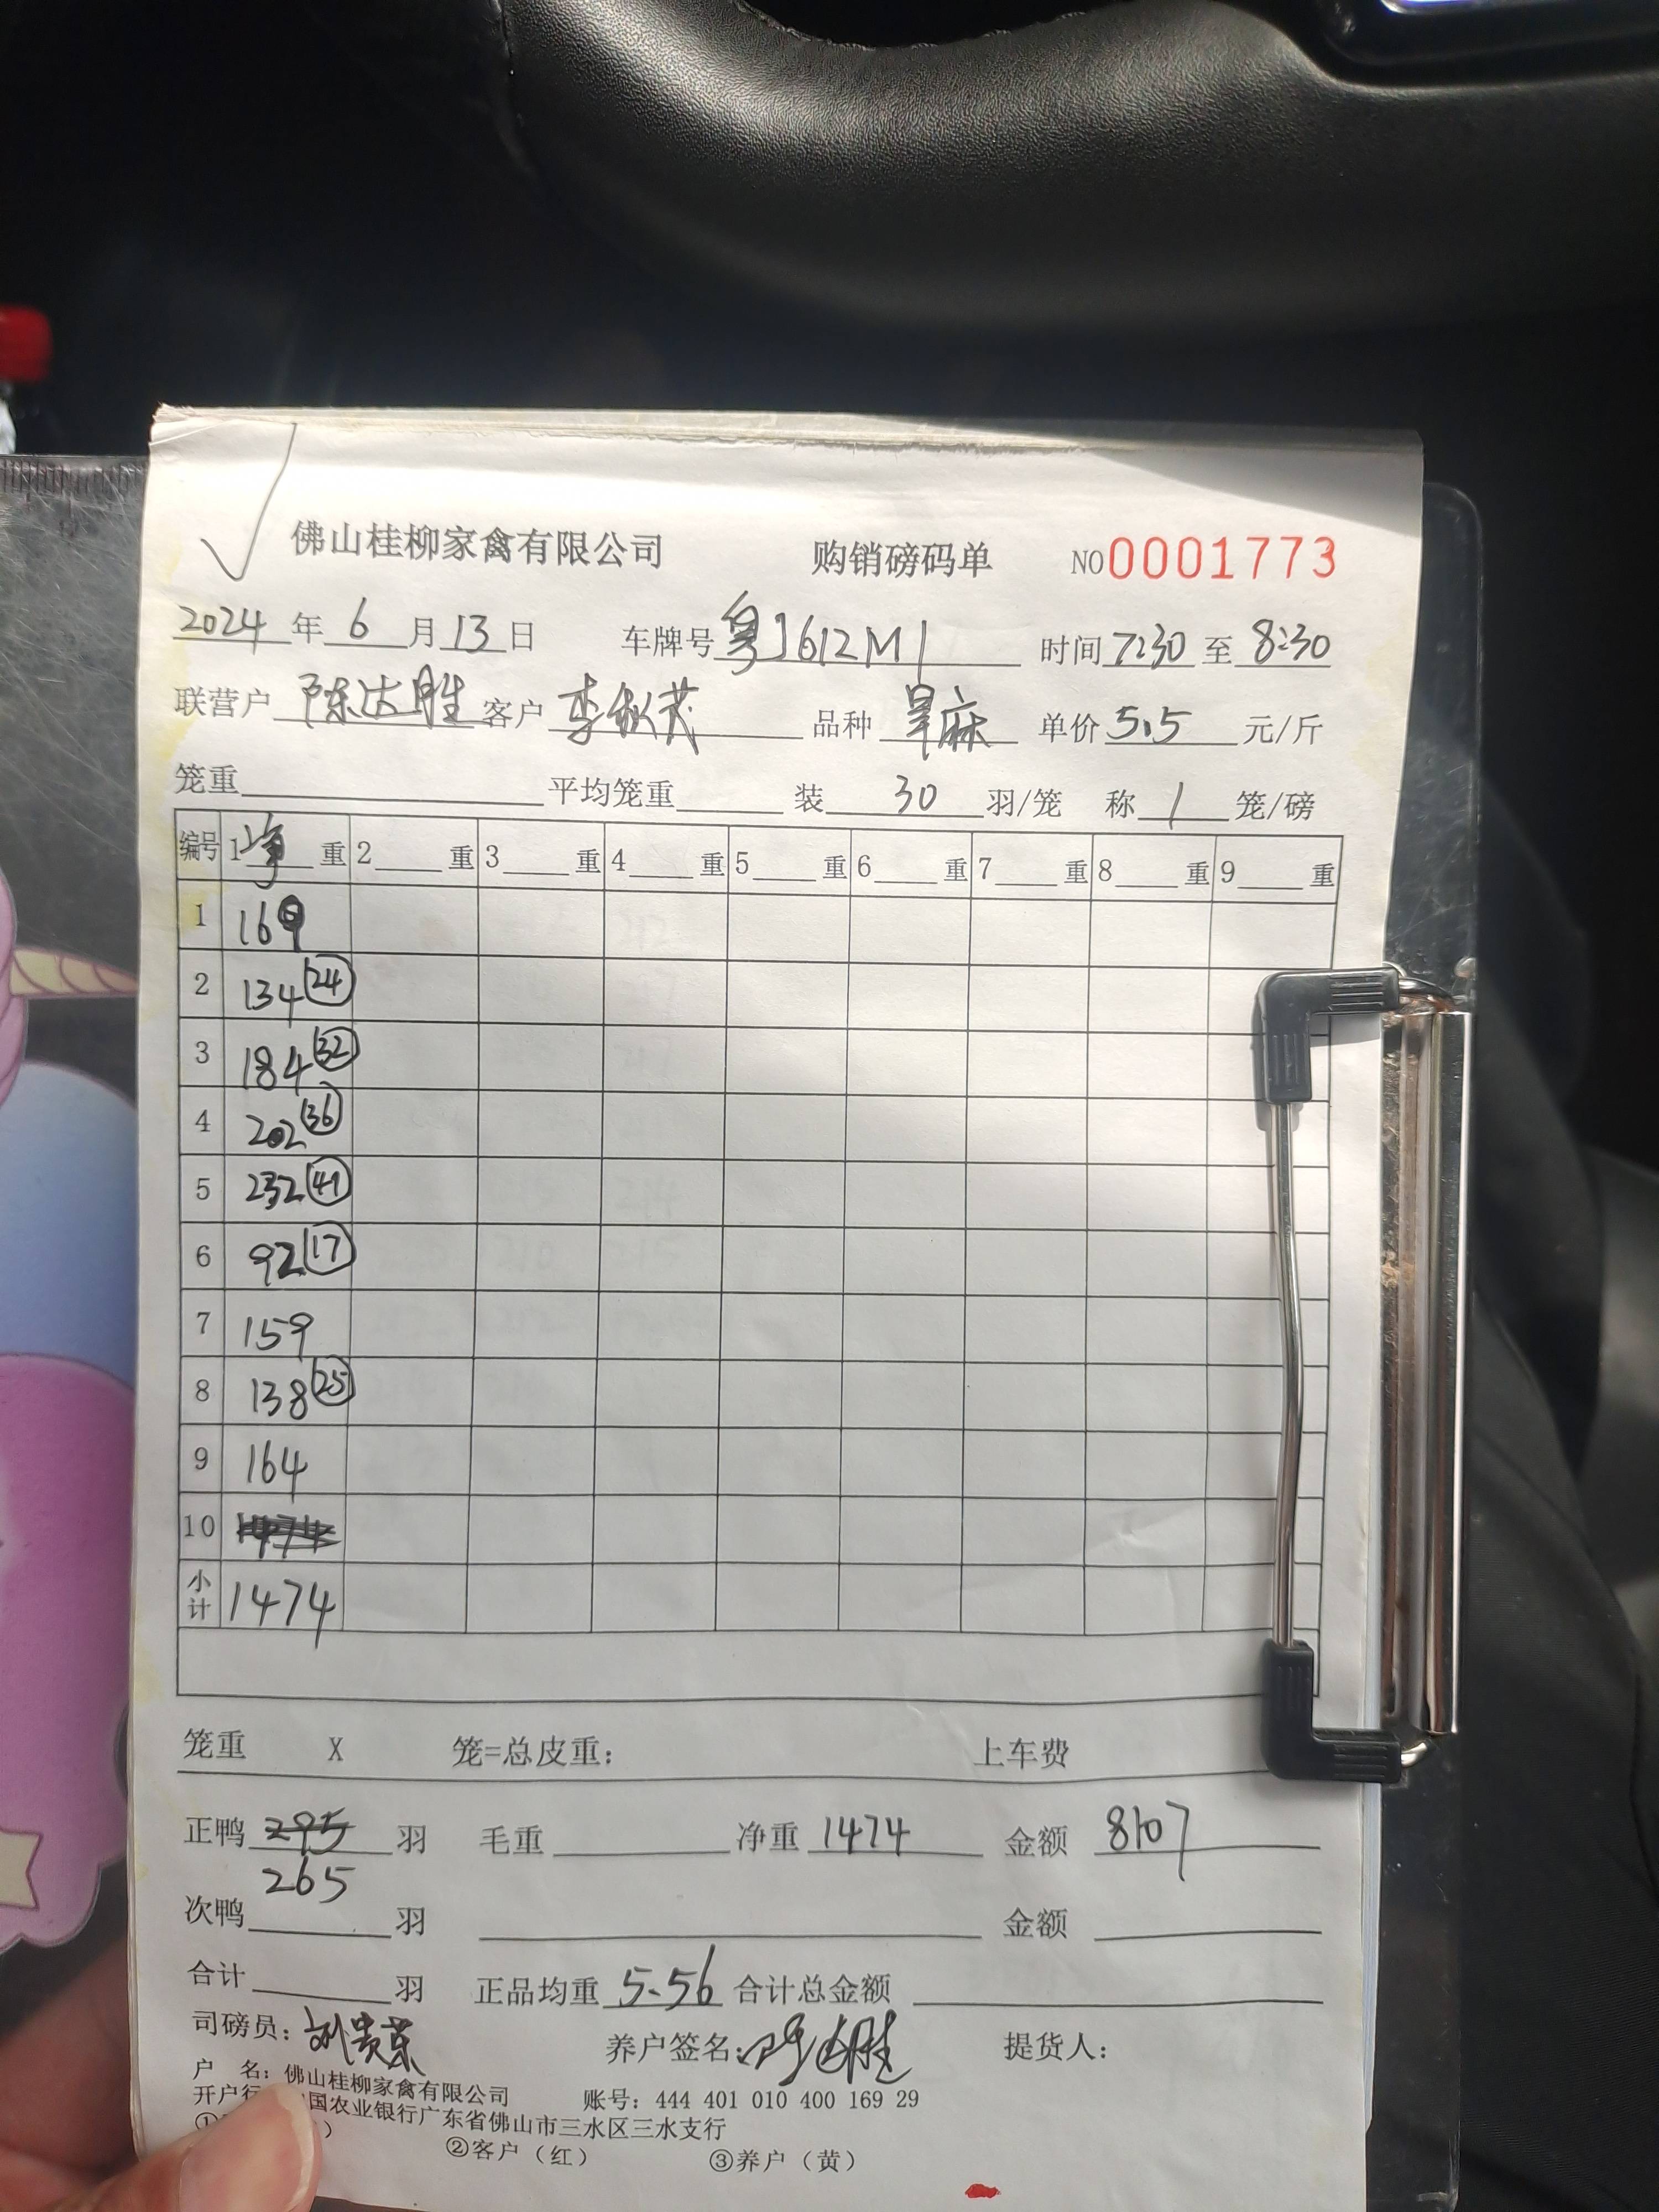 佛山桂柳家禽有限公司 购销磅码单 NO0001773
2024年6月13日 车牌号粤J612M1 时间7:30至8:30
联营户陈达胜客户李秋茂 品种旱麻 单价5.5元/斤
笼重 平均笼重 装30羽/笼 称1笼/磅
编号 1净重 2重 3重 4重 5重 6重 7重 8重 9重
1 169
2 134 24
3 184 32
4 202 36
5 232 41
6 92 17
7 159
8 138 25
9 164
10 1474
小计 1474
笼重 X 笼=总皮重： 上车费
正鸭295羽 毛重 净重1474 金额8107
265
次鸭 羽 金额
合计 羽 正品均重5.56 合计总金额
司磅员：刘贵荣 养户签名：陈达胜 提货人：
户 名：佛山桂柳家禽有限公司 账号：444 401 010 400 169 29
开户行 国农业银行广东省佛山市三水区三水支行
① ） ②客户（红） ③养户（黄）